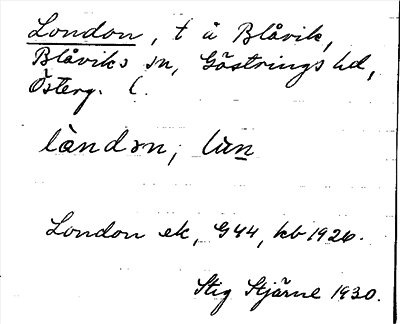 London, t å Blåvik,
Blåviks sn, Göstrings hd,
Österg. l.
làndɔn, lùn
London ek, G44, kb 1926.
Stig Stjärne 1930.